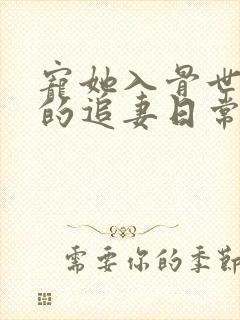 寵她入骨世
的追妻日常
需要你的季節